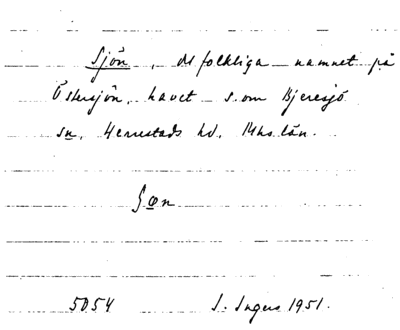 Sjön, det folkliga namnet på
Östersjön, havet s. om Bjeresjö
sn, Herrestads hd, Mhs län.
Søn
5054 I. Ingers 1951.